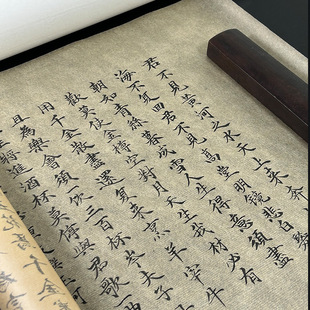 君不見黃河之水天上來奔
海不复回君不見高堂明鏡悲白
朝如青絲暮成雪人生得意須盡
歡莫使金樽空對月天生我材必有
用千金散盡還复來烹羊宰牛
且為樂會須一飲三百杯岑夫子
將進酒杯莫停與君歌